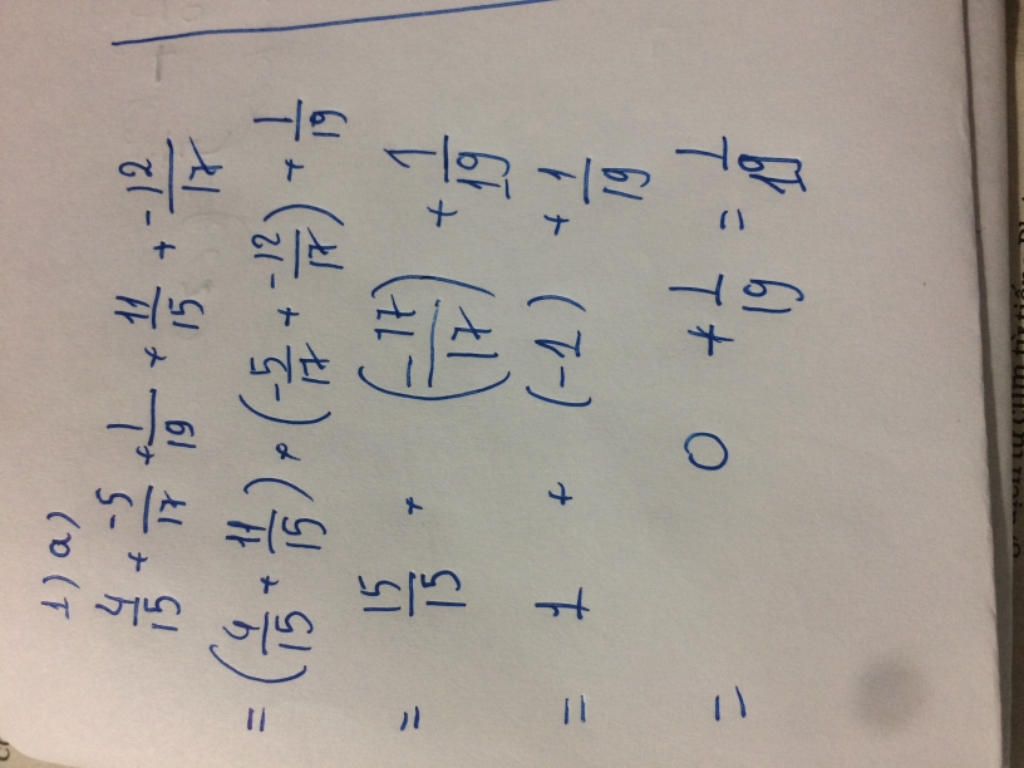 1) a)
4/15 + -5/17 + 1/19 + 11/15 + -12/17
= (4/15 + 11/15) + (-5/17 + -12/17) + 1/19
= 15/15 + (-17/17) + 1/19
= 1 + (-1) + 1/19
= 0 + 1/19 = 1/19